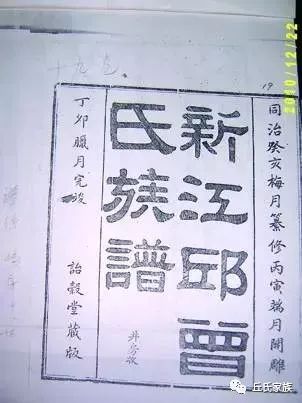 同治癸亥梅月纂修丙寅瑞月開雕
新江邱曾
氏族譜
丁卯臘月完竣
詒穀堂藏版
19
2010/12/22
丘氏家族